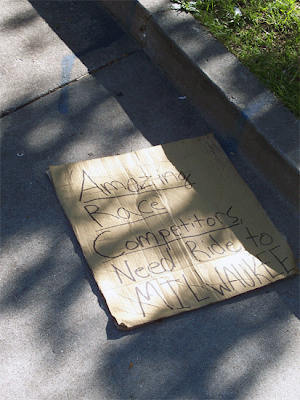 Amazing
Race
Competitors
Need Ride to
MILWAUKEE